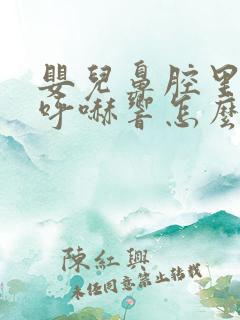 嬰兒鼻腔里
呼嚇響怎麼
陳紅興
未任同意禁止转载